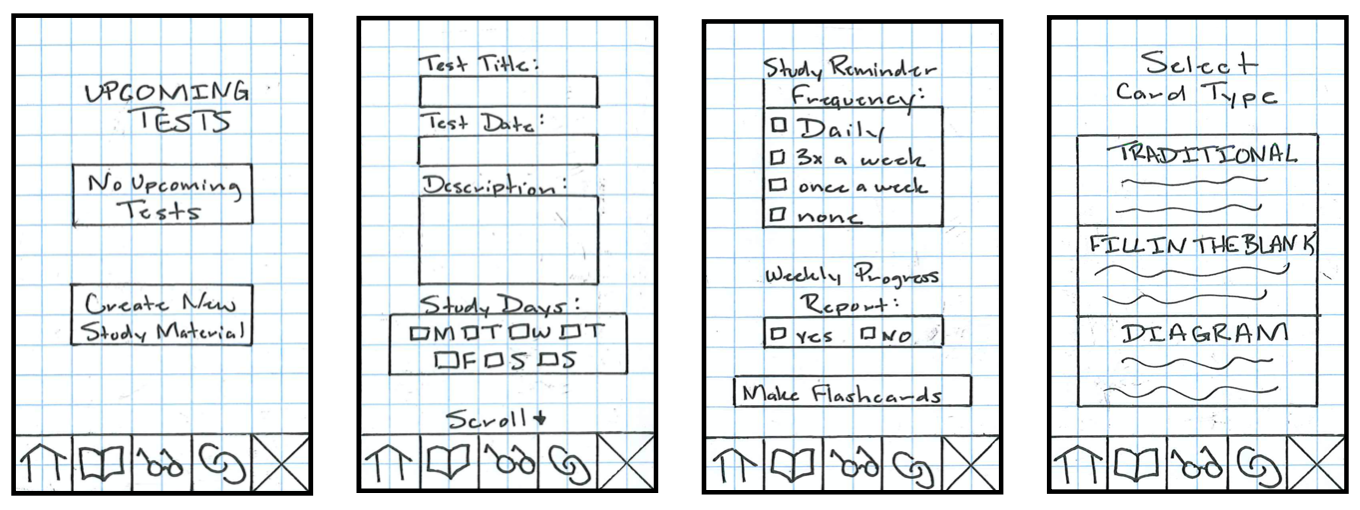 UPCOMING
TESTS
No Upcoming
Tests
Create New
Study Material
Test Title:
Test Date:
Description:
Study Days:
M T W T
F S S
Scroll ↓
Study Reminder
Frequency:
Daily
3x a week
once a week
none
Weekly Progress
Report:
Yes NO
Make Flashcards
Select
Card Type
TRADITIONAL
FILL IN THE BLANK
DIAGRAM